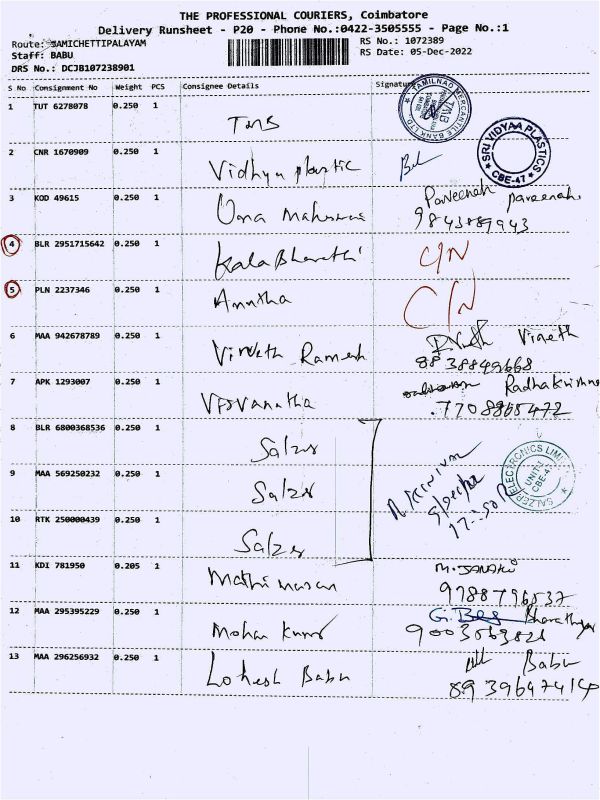 THE PROFESSIONAL COURIERS, Coimbatore
Delivery Runsheet - P20 - Phone No.:0422-3505555 - Page No.:1
Route: SAMICHETTIPALAYAM RS No.: 1072389
Staff: BABU RS Date: 05-Dec-2022
DRS No.: DCJB107238901
S No Consignment No Weight PCS Consignee Details Signature
1 TUT 6278078 0.250 1 TMB
TAMILNAD MERCANTILE BANK LTD. TMB
2 CNR 1670909 0.250 1 Vidhya plastic
SRI VIDYAA PLASTICS CBE-47
3 KOD 49615 0.250 1 Uma Maheswari Paveenah paveenah
9843889943
4 BLR 2951715642 0.250 1 KalaBharathi C/N
5 PLN 2237346 0.250 1 Anutha C/N
6 MAA 942678789 0.250 1 Vineth Ramesh Vineth
8838849668
7 APK 1293007 0.250 1 Visvanatha Radhakrishna
7708865472
8 BLR 6800368536 0.250 1 Salzer
9 MAA 569250232 0.250 1 Salzer
SALZER ELECTRONICS LIMI UNIT-1 CBE-47
10 RTK 250000439 0.250 1 Salzer
11 KDI 781950 0.205 1 Mathimaran M. JANAKI
9788796537
12 MAA 295395229 0.250 1 Mohan Kumar
9003563821
13 MAA 296256932 0.250 1 Lokesh Babu Babu
8939647414